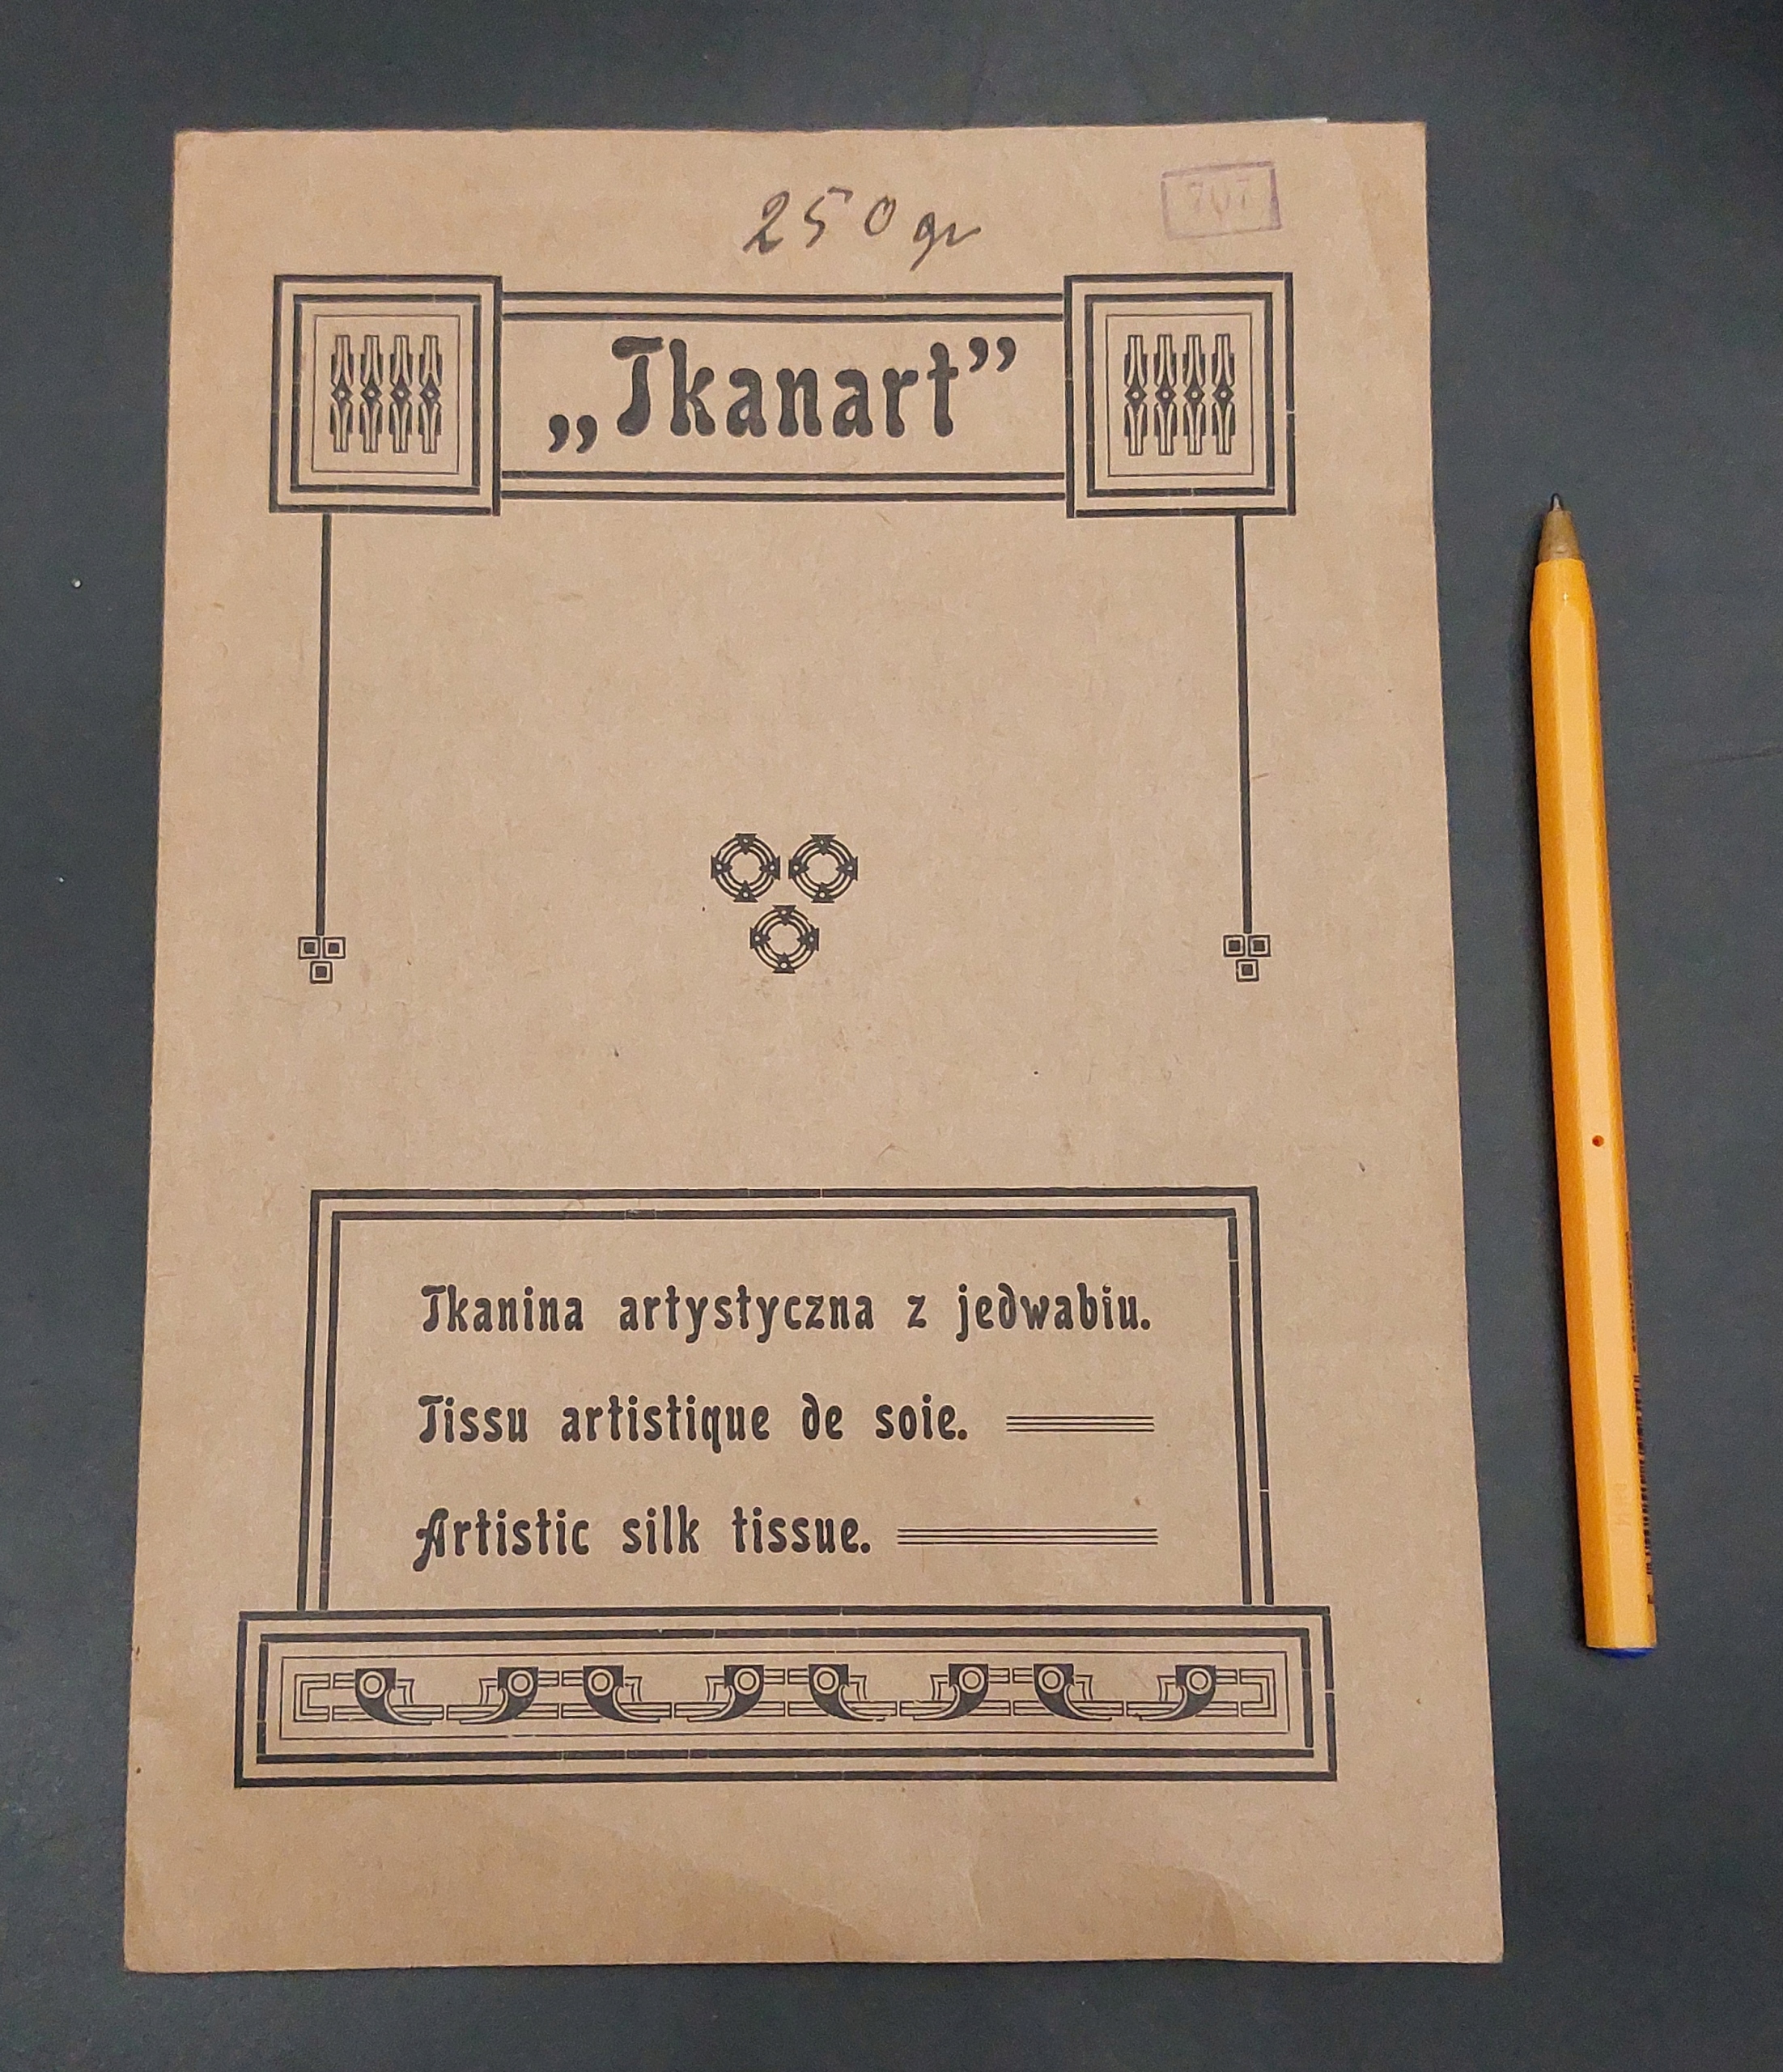 250 gr
707
„Tkanart”
Tkanina artystyczna z jedwabiu.
Tissu artistique de soie.
Artistic silk tissue.